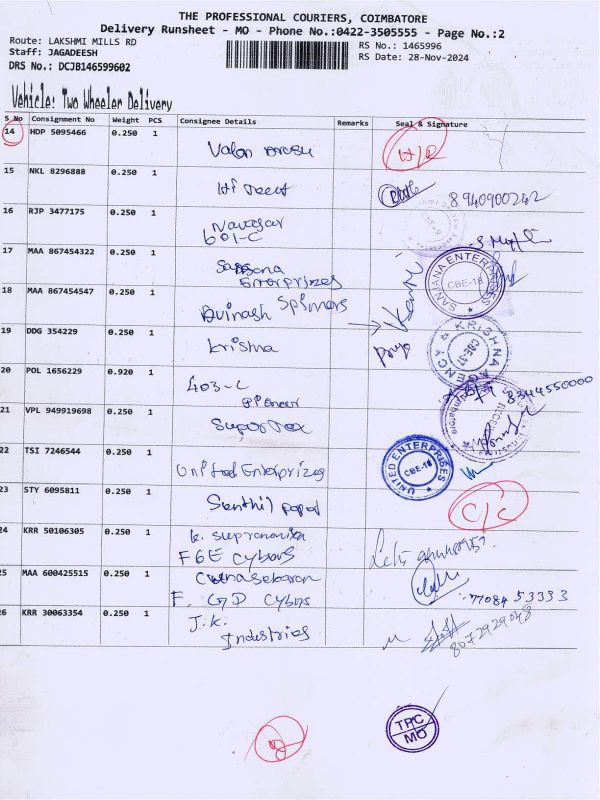 THE PROFESSIONAL COURIERS, COIMBATORE
Delivery Runsheet - MO - Phone No.:0422-3505555 - Page No.:2
Route: LAKSHMI MILLS RD
RS No.: 1465996
Staff: JAGADEESH
RS Date: 28-Nov-2024
DRS No.: DCJB146599602
Vehicle: Two Wheeler Delivery
S No Consignment No Weight PCS Consignee Details Remarks Seal & Signature
14 HDP 5095466 0.250 1
15 NKL 8296888 0.250 1 8940900242
16 RJP 3477175 0.250 1 Navasar
601-C
17 MAA 867454322 0.250 1 Enterprizes
SANJANA ENTERPRISES CBE-18
18 MAA 867454547 0.250 1 Avinash Spinners
19 DDG 354229 0.250 1 Krishna Priya
KRISHNA AGENCY CBE-37
20 POL 1656229 0.920 1 403-C
8344550000
21 VPL 949919698 0.250 1 Supertex
22 TSI 7246544 0.250 1 United Enterprizes
UNITED ENTERPRISES CBE-18
23 STY 6095811 0.250 1 Senthil C/C
24 KRR 50106305 0.250 1
FGE Cybers
25 MAA 600425515 0.250 1
F. Cybers 77084 53333
26 KRR 30063354 0.250 1 J.K.
Industries 8072929048
TPC
MO